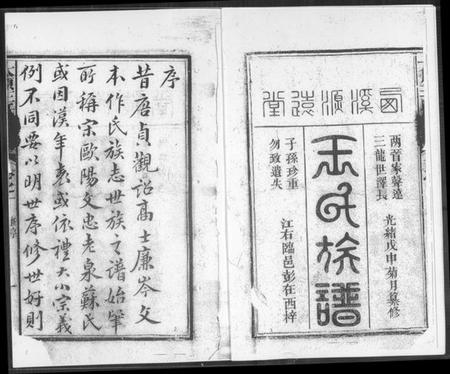 西溪源遠堂
兩晉家聲遠
三龍世澤長
光緒戊申菊月纂修
王氏族譜
子孫珍重
勿致遺失
江右臨邑彭在西梓
序
昔唐貞觀詔高士廉岑文
本作氏族志世族之譜始肇
所稱宋歐陽文忠老泉蘇氏
或因漢年表或依禮大小宗義
例不同要以明世序修世好則